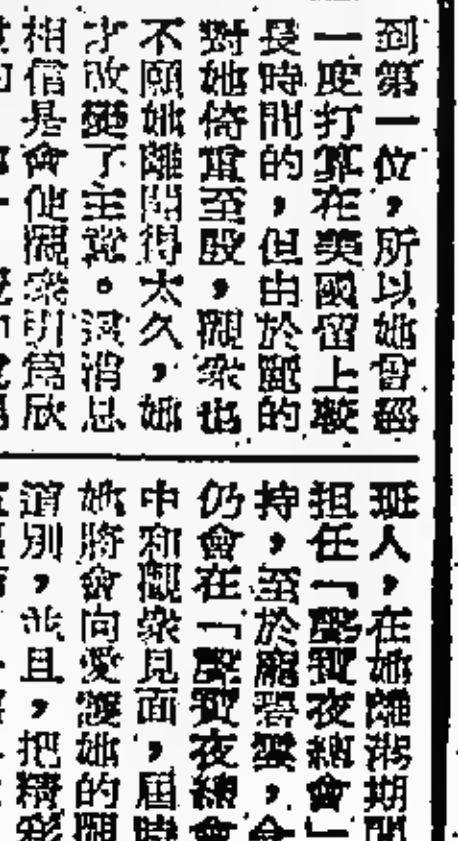 到第一位，所以她曾經
一度打算在美國留上較
長時間的，但由於麗的
對她倚重至殷，觀衆也
不願她離開得太久，她
才改變了主意。消息
相信是會使觀衆引爲欣
班人，在她離港期間
担任「聲寶夜總會」
持，至於碧雲，會
仍會在「聲寶夜總會
中和觀衆見面，屆時
她將會向愛護她的觀
道別，並且，把精彩